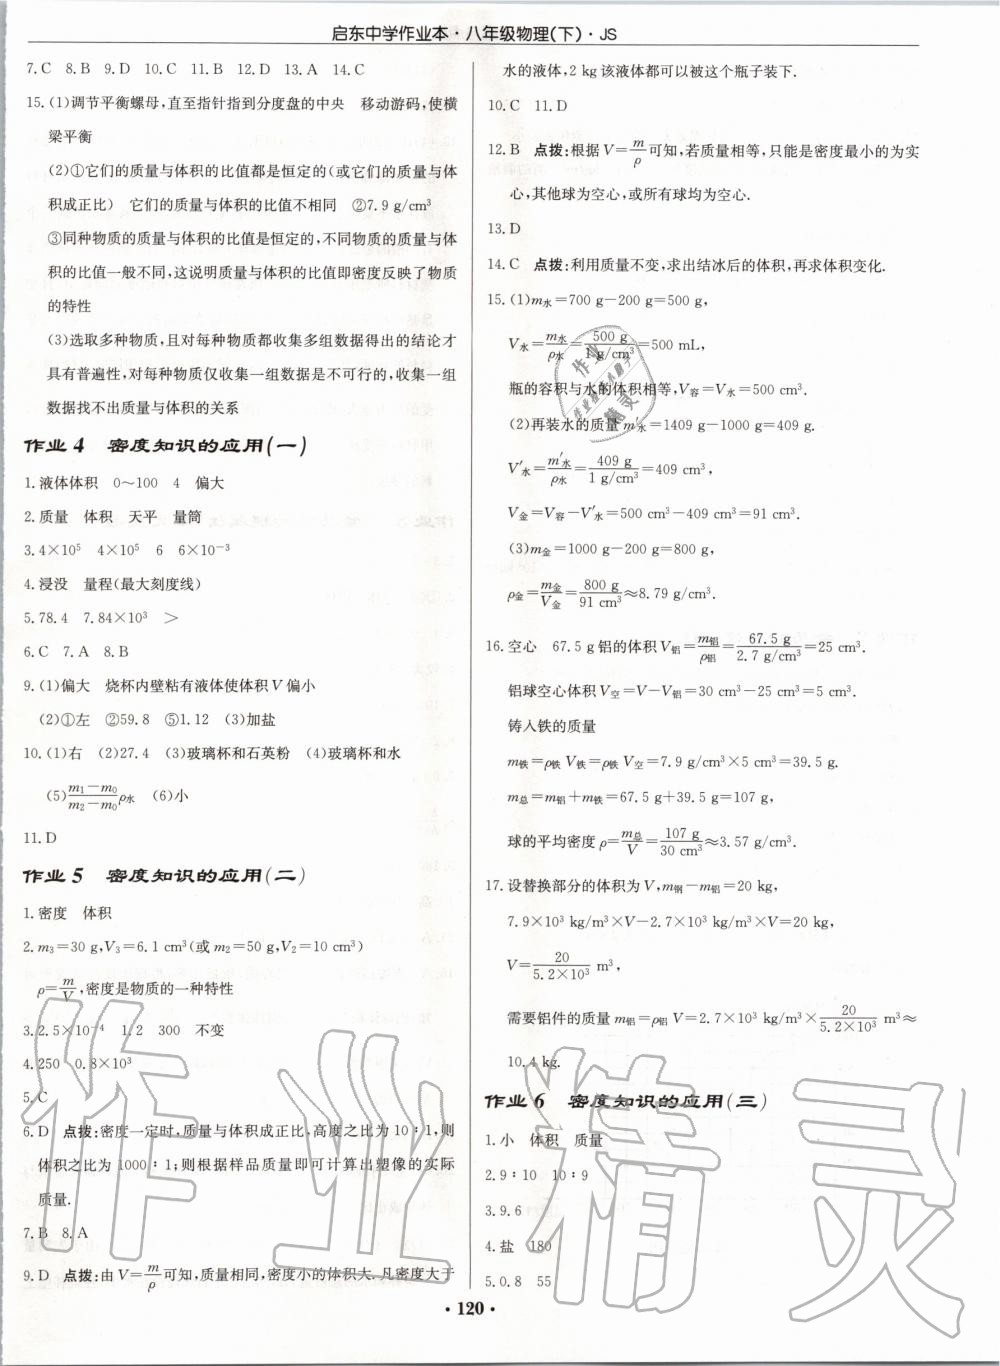 启东中学作业本·八年级物理(下)·JS
7.C 8.B 9.D 10.C 11.B 12.D 13.A 14.C
15.(1)调节平衡螺母,直至指针指到分度盘的中央 移动游码,使横
梁平衡
(2)①它们的质量与体积的比值都是恒定的(或它们的质量与体
积成正比) 它们的质量与体积的比值不相同 ②7.9 g/cm³
③同种物质的质量与体积的比值是恒定的,不同物质的质量与体
积的比值一般不同,这说明质量与体积的比值即密度反映了物质
的特性
(3)选取多种物质,且对每种物质都收集多组数据得出的结论才
具有普遍性,对每种物质仅收集一组数据是不可行的,收集一组
数据找不出质量与体积的关系
作业4 密度知识的应用(一)
1.液体体积 0～100 4 偏大
2.质量 体积 天平 量筒
3.4×10⁵ 4×10⁵ 6 6×10⁻³
4.浸没 量程(最大刻度线)
5.78.4 7.84×10³ ＞
6.C 7.A 8.B
9.(1)偏大 烧杯内壁粘有液体使体积V偏小
(2)①左 ②59.8 ⑤1.12 (3)加盐
10.(1)右 (2)27.4 (3)玻璃杯和石英粉 (4)玻璃杯和水
(5)(m₁－m₀)/(m₂－m₀)ρ水 (6)小
11.D
作业5 密度知识的应用(二)
1.密度 体积
2.m₃＝30 g,V₃＝6.1 cm³(或m₂＝50 g,V₂＝10 cm³)
ρ＝m/V,密度是物质的一种特性
3.2.5×10⁻⁴ 1.2 300 不变
4.250 0.8×10³
5.C
6.D 点拨:密度一定时,质量与体积成正比,高度之比为10∶1,则
体积之比为1000∶1;则根据样品质量即可计算出塑像的实际
质量.
7.B 8.A
9.D 点拨:由V＝m/ρ可知,质量相同,密度小的体积大.凡密度大于
水的液体,2 kg该液体都可以被这个瓶子装下.
10.C 11.D
12.B 点拨:根据V＝m/ρ可知,若质量相等,只能是密度最小的为实
心,其他球为空心,或所有球均为空心.
13.D
14.C 点拨:利用质量不变,求出结冰后的体积,再求体积变化.
15.(1)m水＝700 g－200 g＝500 g,
V水＝m水/ρ水＝500 g/1 g/cm³＝500 mL,
瓶的容积与水的体积相等,V容＝V水＝500 cm³.
(2)再装水的质量m′水＝1409 g－1000 g＝409 g.
V′水＝m′水/ρ水＝409 g/1 g/cm³＝409 cm³,
V金＝V容－V′水＝500 cm³－409 cm³＝91 cm³.
(3)m金＝1000 g－200 g＝800 g,
ρ金＝m金/V金＝800 g/91 cm³≈8.79 g/cm³.
16.空心 67.5 g铝的体积V铝＝m铝/ρ铝＝67.5 g/2.7 g/cm³＝25 cm³.
铝球空心体积V空＝V－V铝＝30 cm³－25 cm³＝5 cm³.
铸入铁的质量
m铁＝ρ铁V铁＝ρ铁V空＝7.9 g/cm³×5 cm³＝39.5 g.
m总＝m铝＋m铁＝67.5 g＋39.5 g＝107 g,
球的平均密度ρ＝m总/V＝107 g/30 cm³≈3.57 g/cm³.
17.设替换部分的体积为V,m钢－m铝＝20 kg,
7.9×10³ kg/m³×V－2.7×10³ kg/m³×V＝20 kg,
V＝20/5.2×10³ m³,
需要铝件的质量m铝＝ρ铝V＝2.7×10³ kg/m³×20/5.2×10³ m³≈
10.4 kg.
作业6 密度知识的应用(三)
1.小 体积 质量
2.9∶10 10∶9
3.9.6
4.盐 180
5.0.8 55
·120·
作业精灵